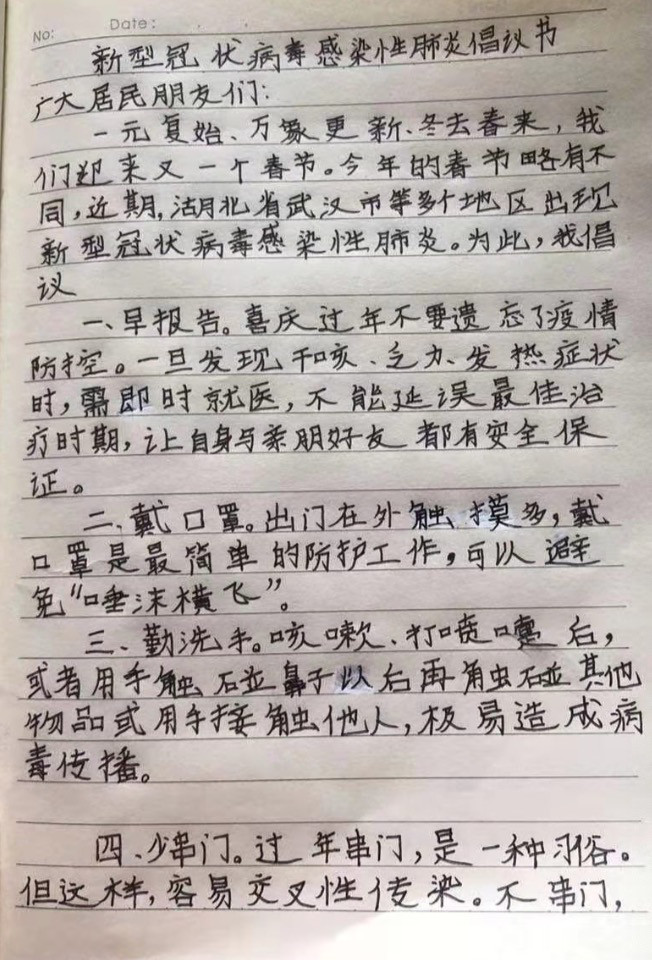 No:
Date:
新型冠状病毒感染性肺炎倡议书
广大居民朋友们:
一元复始、万象更新、冬去春来,我
们迎来又一个春节。今年的春节略有不
同,近期,湖北省武汉市等多个地区出现
新型冠状病毒感染性肺炎。为此,我倡
议
一、早报告。喜庆过年不要遗忘了疫情
防控。一旦发现干咳、乏力、发热症状
时,需即时就医,不能延误最佳治
疗时期,让自身与亲朋好友都有安全保
证。
二、戴口罩。出门在外触摸多,戴
口罩是最简单的防护工作,可以避
免“唾沫横飞”。
三、勤洗手。咳嗽、打喷嚏后,
或者用手触碰鼻子以后再触碰其他
物品或用手接触他人,极易造成病
毒传播。
四、少串门。过年串门,是一种习俗。
但这样,容易交叉性传染。不串门,